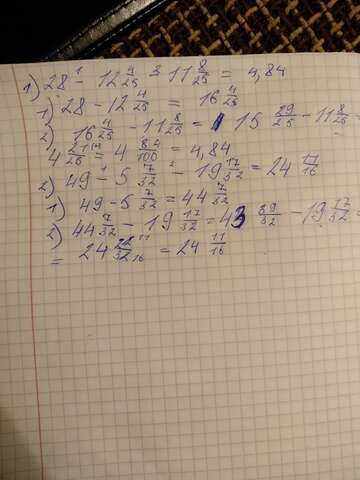 1) 28 - 12 4/25 - 11 8/25 = 4,84
1) 28 - 12 4/25 = 16 4/25
2) 16 4/25 - 11 8/25 = 15 29/25 - 11 8/25
4 21/25 = 4 84/100 = 4,84
2) 49 - 5 7/32 - 19 17/32 = 24 11/16
1) 49 - 5 7/32 = 44 7/32
2) 44 7/32 - 19 17/32 = 43 39/32 - 19 17/32
= 24 22/32 = 24 11/16